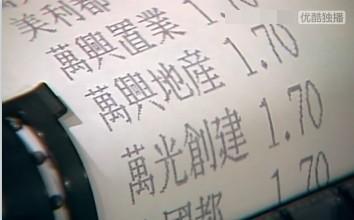 优酷独播
美利都 1.70
萬興置業 1.70
萬興地産 1.70
萬光創建 1.70
國都 1.70